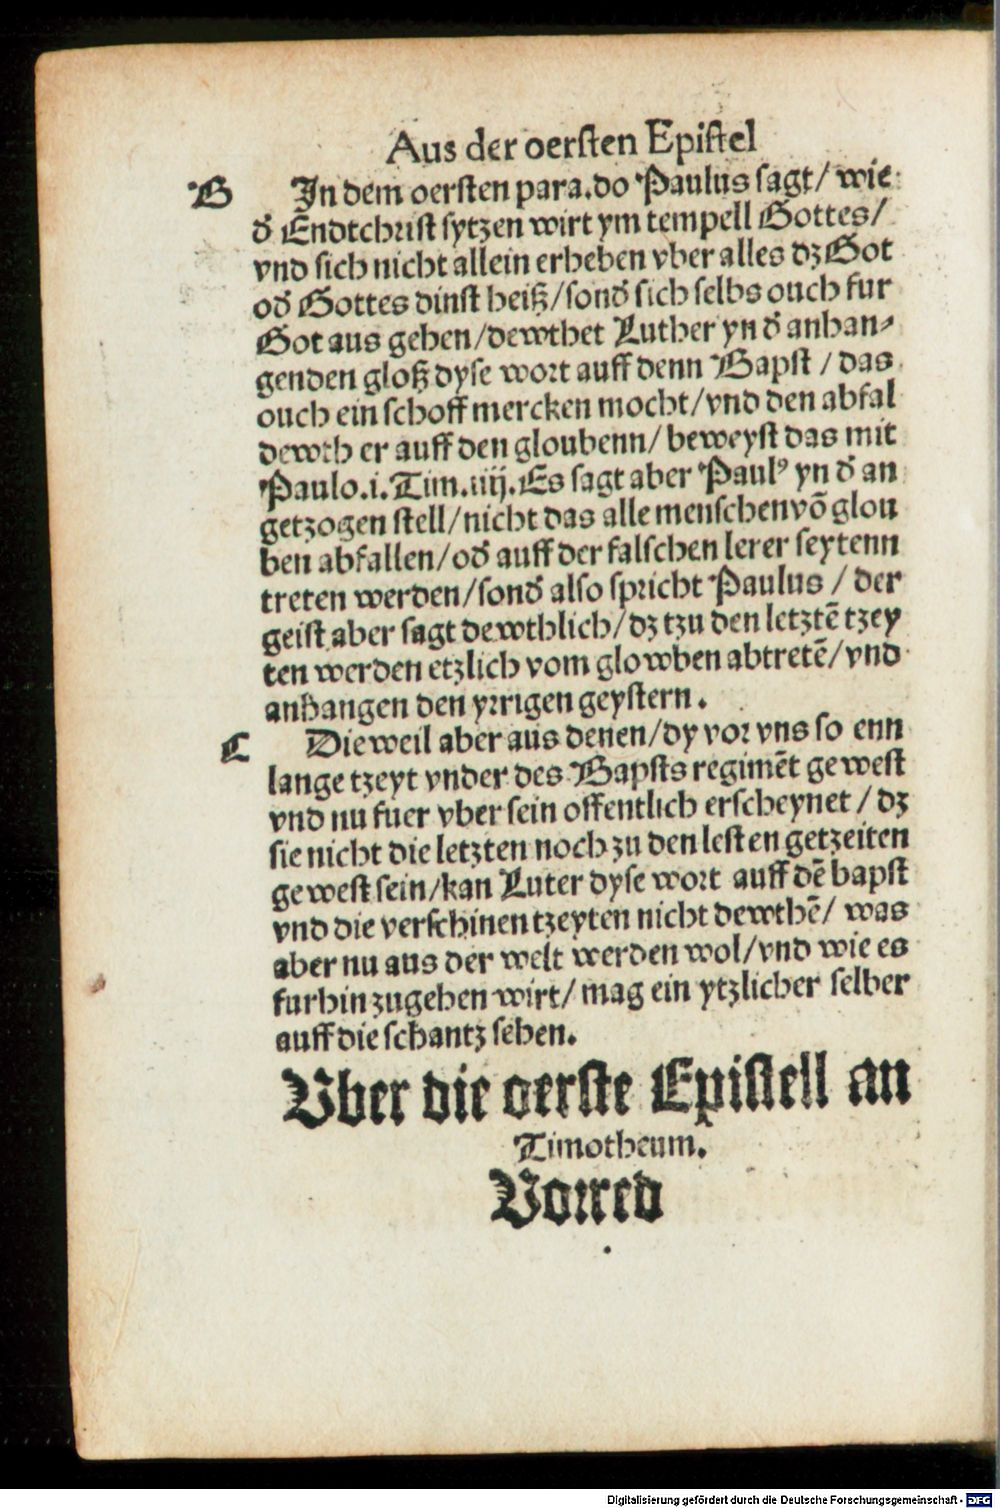 Aus der oersten Epistel
B In dem oersten para. do Paulus sagt/ wie
d̕ Endtchrist sytzen wirt ym tempell Gottes/
vnd sich nicht allein erheben vber alles dz Got
od̕ Gottes dinst heiß/ sond̕ sich selbs ouch fur
Got aus geben/ dewthet Luther yn d̕ anhan⸗
genden gloß dyse wort auff denn Bapst / das
ouch ein schoff mercken mocht/ vnd den abfal
dewth er auff den gloubenn/ beweyst das mit
Paulo.i.Tim.iiij. Es sagt aber Paulꝰ yn d̕ an
getzogen stell/ nicht das alle menschen võ glou
ben abfallen/ od̕ auff der falschen lerer seytenn
treten werden/ sond̕ also spricht Paulus / der
geist aber sagt dewthlich/ dz tzu den letztẽ tzey
ten werden etzlich vom glowben abtretẽ/ vnd
anhangen den yrrigen geystern.
C Die weil aber aus denen/ dy vor vns so enn
lange tzeyt vnder des Bapsts regimẽt gewest
vnd nu fuer vber sein offentlich erscheynet / dz
sie nicht die letzten noch zu den lesten getzeiten
gewest sein/ kan Luter dyse wort auff dẽ bapst
vnd die verschinen tzeyten nicht dewthẽ/ was
aber nu aus der welt werden wol/ vnd wie es
furhin zugehen wirt/ mag ein ytzlicher selber
auff die schantz sehen.
Vber die oerste Epistell an
Timotheum.
Vorred
Digitalisierung gefördert durch die Deutsche Forschungsgemeinschaft - DFG